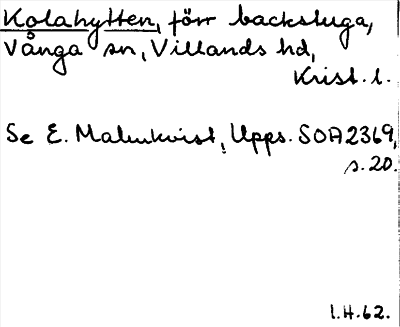 Kolahytten, förr backstuga,
Vånga sn, Villands hd,
Krist. l.
Se E. Malmkvist, Upps. SOA2369,
s. 20.
I.H.62.